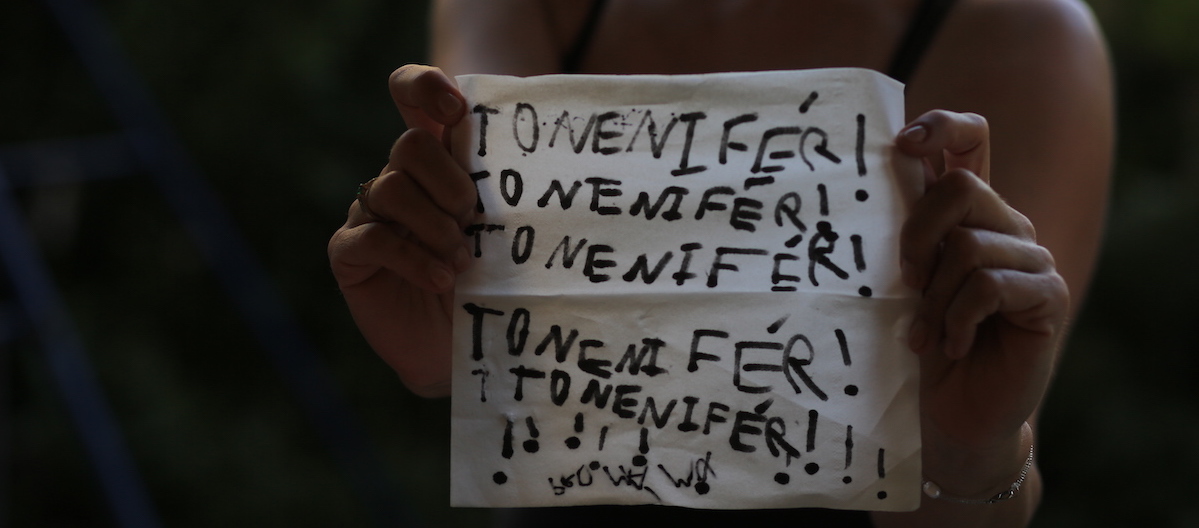 TO NENIFÉR!
TO NENIFÉR!
TO NENIFÉR!
TO NENI FÉR!
T TO NENIFÉR!
! ! ! ! ! ! ! !